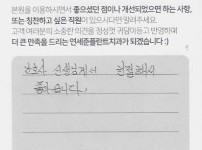 본원을 이용하시면서 좋으셨던 점이나 개선되었으면 하는 사항,
또는 칭찬하고 싶은 직원이 있으시다면 말려주세요.
고객 여러분의 소중한 의견을 정성껏 귀담아듣고 반영하여
더 큰 만족을 드리는 연세준플란트치과가 되겠습니다 :)
간호사 선생님께서 친절하셔서
좋습니다.